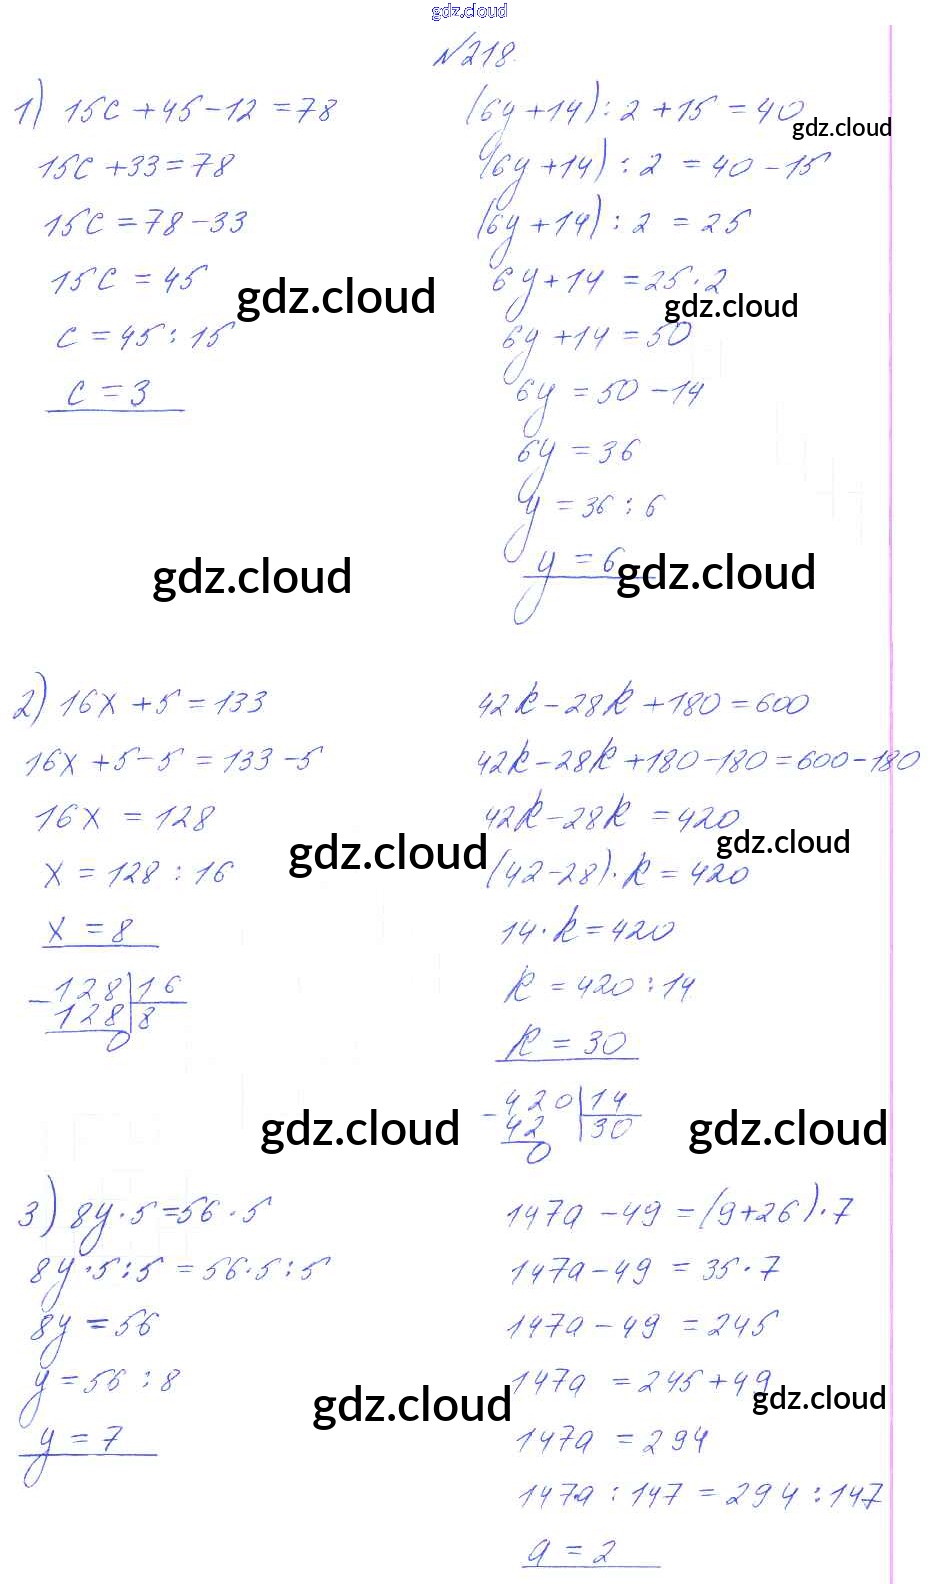 gdz.cloud
№218.
1) 15c + 45 - 12 = 78
15c + 33 = 78
15c = 78 - 33
15c = 45
c = 45 : 15
c = 3
(6y + 14) : 2 + 15 = 40
(6y + 14) : 2 = 40 - 15
(6y + 14) : 2 = 25
6y + 14 = 25 · 2
6y + 14 = 50
6y = 50 - 14
6y = 36
y = 36 : 6
y = 6
gdz.cloud
gdz.cloud
gdz.cloud
gdz.cloud
gdz.cloud
2) 16x + 5 = 133
16x + 5 - 5 = 133 - 5
16x = 128
x = 128 : 16
x = 8
- 128 | 16
128 | 8
0
42k - 28k + 180 = 600
42k - 28k + 180 - 180 = 600 - 180
42k - 28k = 420
(42 - 28) · k = 420
14 · k = 420
k = 420 : 14
k = 30
- 420 | 14
42 | 30
0
gdz.cloud
gdz.cloud
gdz.cloud
gdz.cloud
3) 8y · 5 = 56 · 5
8y · 5 : 5 = 56 · 5 : 5
8y = 56
y = 56 : 8
y = 7
147a - 49 = (9 + 26) · 7
147a - 49 = 35 · 7
147a - 49 = 245
147a = 245 + 49
147a = 294
147a : 147 = 294 : 147
a = 2
gdz.cloud
gdz.cloud